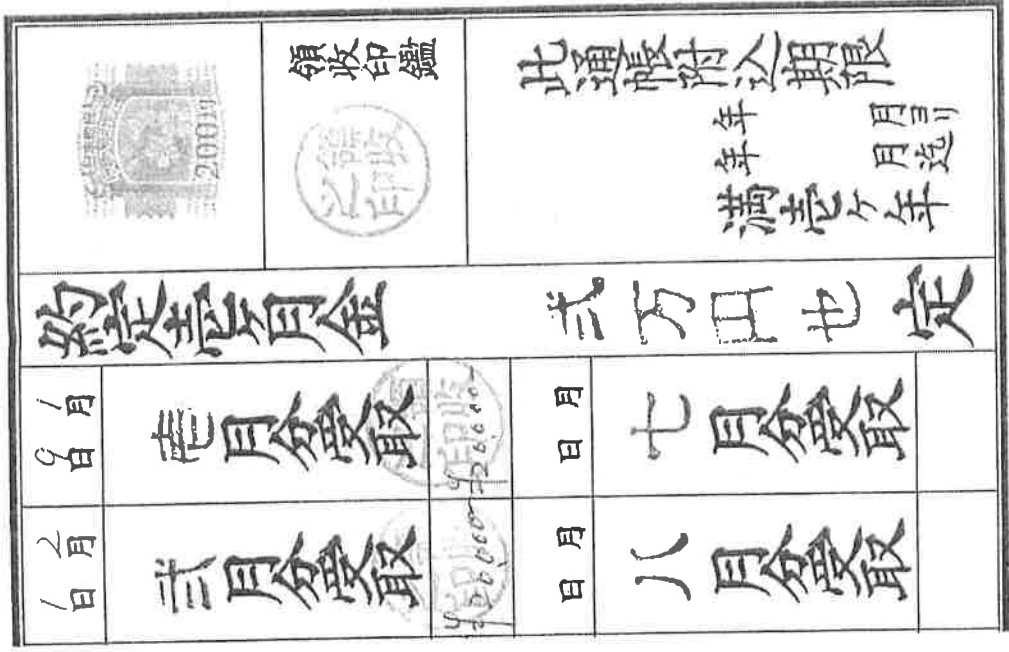 此通帳附込期限
年 月ヨリ
年 月迄
満壱ヶ年
領收印鑑
領收之印
200円
約定壱ヶ月金 弐万円也 定
1月9日 壱月分受取 ¥20000-
月 日 七月分受取
2月1日 弐月分受取 ¥20000-
月 日 八月分受取